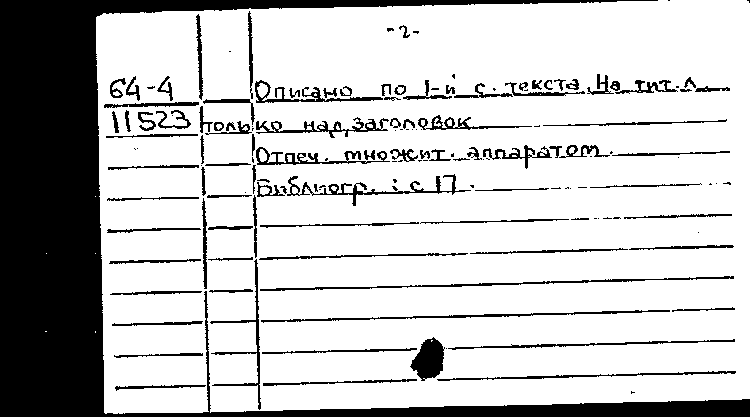 -2-
64-4 Описано по 1-й с. текста. На тит. л.
11523 только над заголовок
Отпеч. множит. аппаратом.
Библиогр.: с 17.